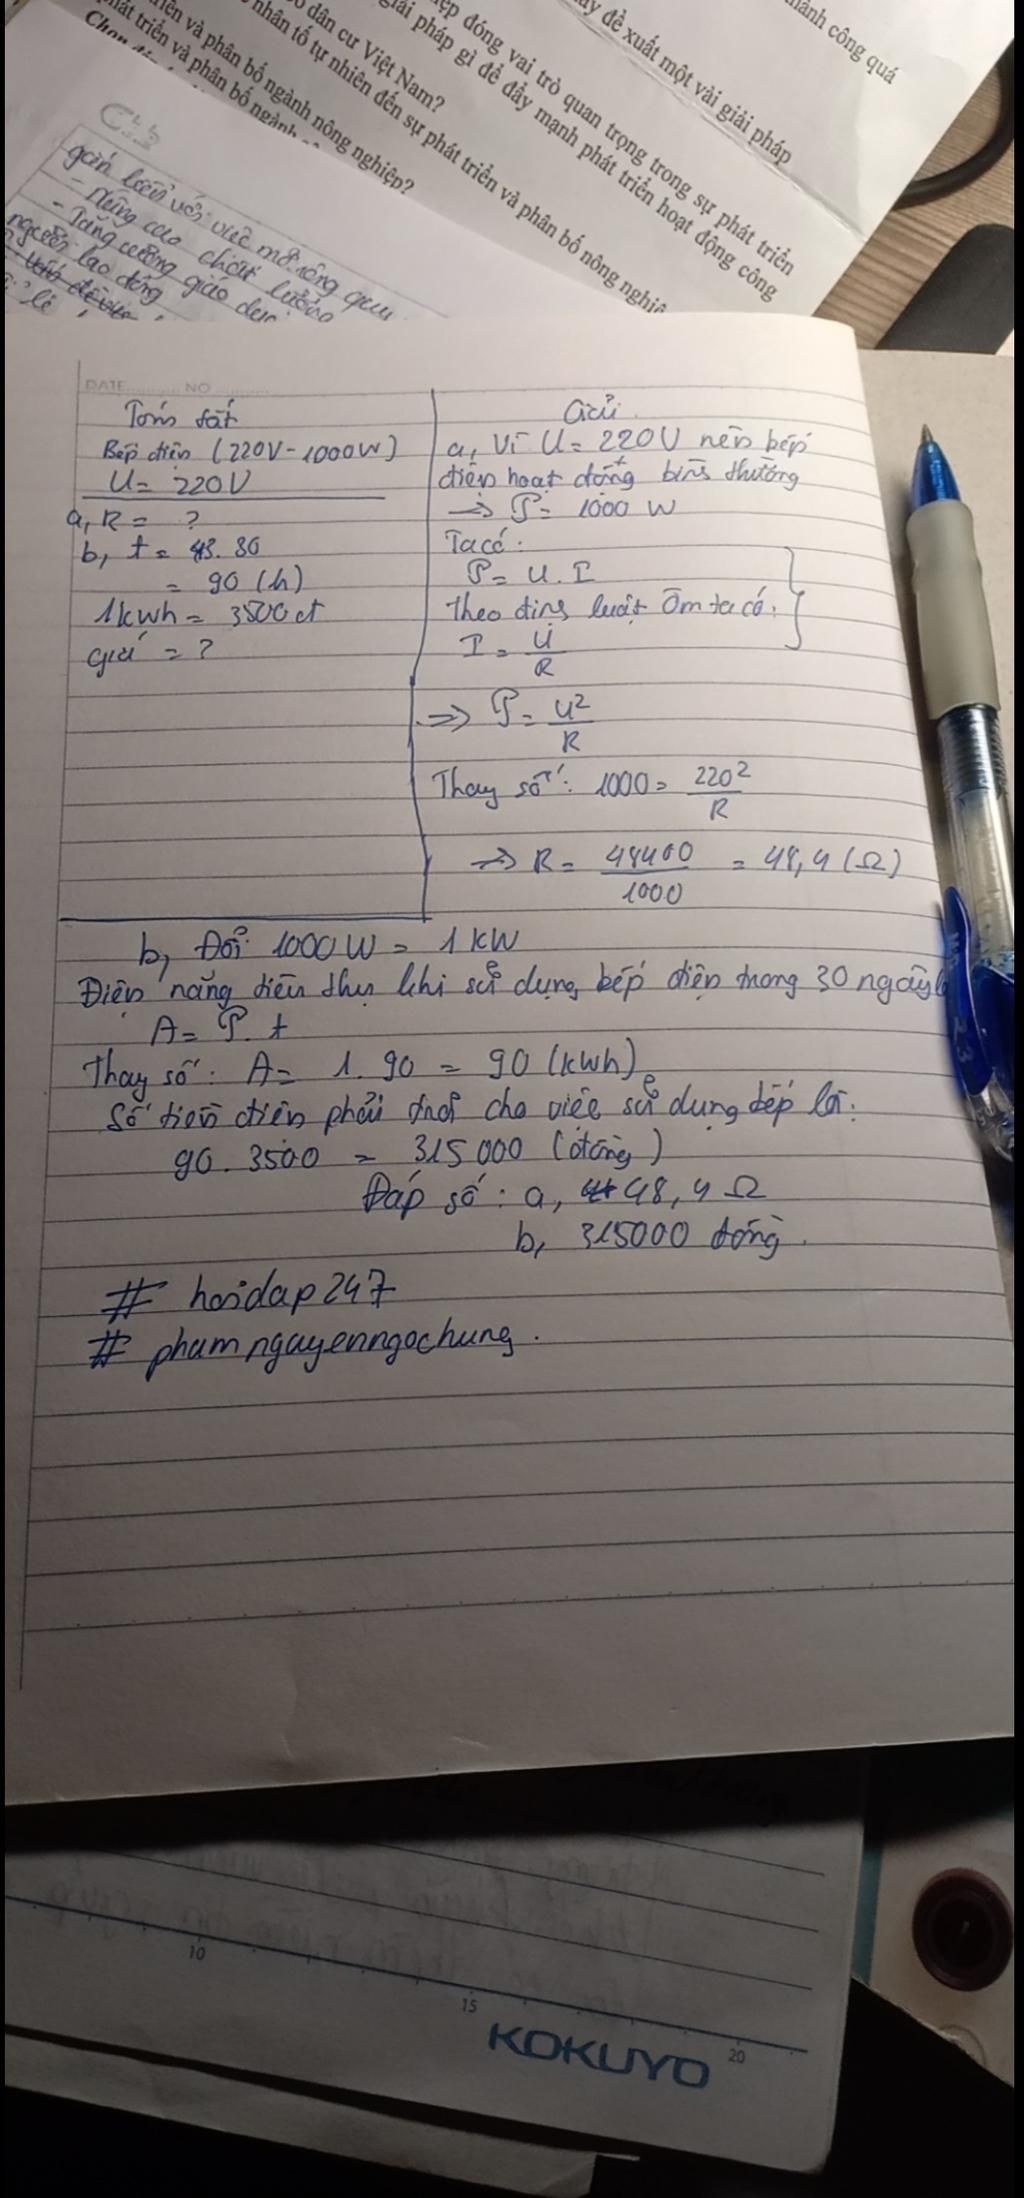 hành công quá
ãy đề xuất một vài giải pháp
iệp đóng vai trò quan trọng trong sự phát triển
giải pháp gì để đẩy mạnh phát triển hoạt động công
dân cư Việt Nam?
nhân tố tự nhiên đến sự phát triển và phân bố nông nghiệ
riển và phân bố ngành nông nghiệp?
phát triển và phân bố ngành
Chọn
gắn liền với việc mở rộng quy
- Nâng cao chất lượng
- Tăng cường giáo dục
người lao động
DATE NO
Tóm tắt
Bếp điện (220V-1000W)
U= 220V
a, R = ?
b, t = 3.30
= 90 (h)
1kwh = 3500đ
giá = ?
Giải
a, Vì U = 220V nên bếp
điện hoạt động bình thường
=> P = 1000 W
Ta có:
P = U.I
Theo định luật Ôm ta có:
I = U/R
=> P = U²/R
Thay số: 1000 = 220²/R
=> R = 48400/1000 = 48,4 (Ω)
b, Đổi 1000W = 1 KW
Điện năng tiêu thụ khi sử dụng bếp điện trong 30 ngày là
A = P.t
Thay số: A = 1.90 = 90 (kwh)
Số tiền điện phải trả cho việc sử dụng bếp là:
90.3500 = 315 000 (đồng)
Đáp số: a, 48,4 Ω
b, 315000 đồng.
# hoidap247
# phamnguyenngochung.
10
15
20
KOKUYO